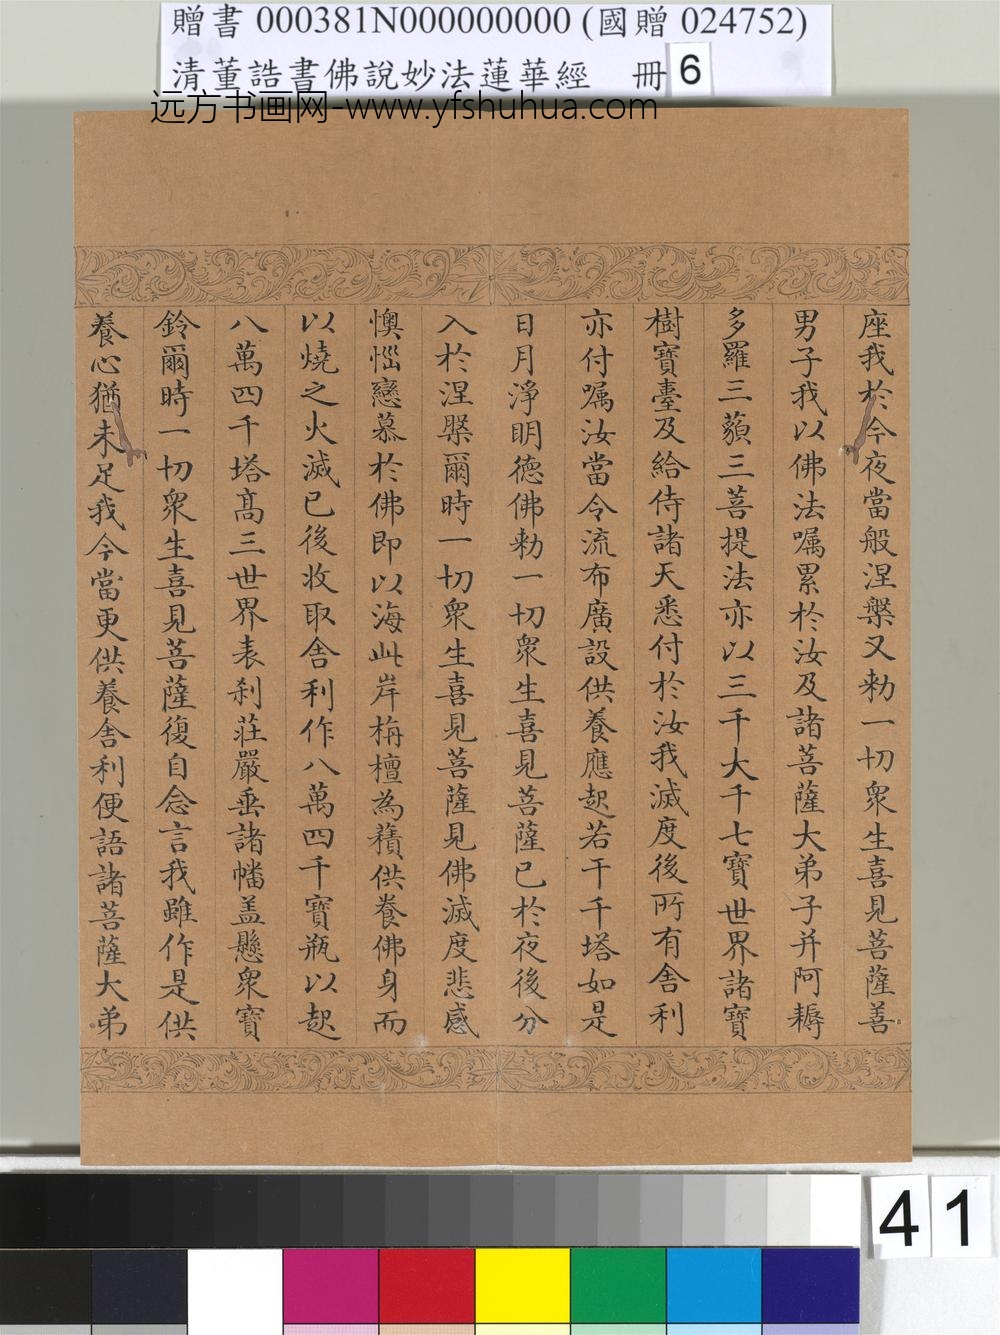 贈書 000381N000000000 (國贈 024752)
清董誥書佛說妙法蓮華經 冊 6
远方书画网-www.yfshuhua.com
座我於今夜當般涅槃又勑一切衆生喜見菩薩善
男子我以佛法嘱累於汝及諸菩薩大弟子并阿耨
多羅三藐三菩提法亦以三千大千七寶世界諸寶
樹寶臺及給侍諸天悉付於汝我滅度後所有舍利
亦付嘱汝當令流布廣設供養應起若干千塔如是
日月淨明德佛勑一切衆生喜見菩薩已於夜後分
入於涅槃爾時一切衆生喜見菩薩見佛滅度悲感
懊惱戀慕於佛即以海此岸栴檀為𧂐供養佛身而
以燒之火滅已後收取舍利作八萬四千寶瓶以起
八萬四千塔髙三世界表刹莊嚴垂諸幡盖懸衆寶
鈴爾時一切衆生喜見菩薩復自念言我雖作是供
養心猶未足我今當更供養舍利便語諸菩薩大弟
41